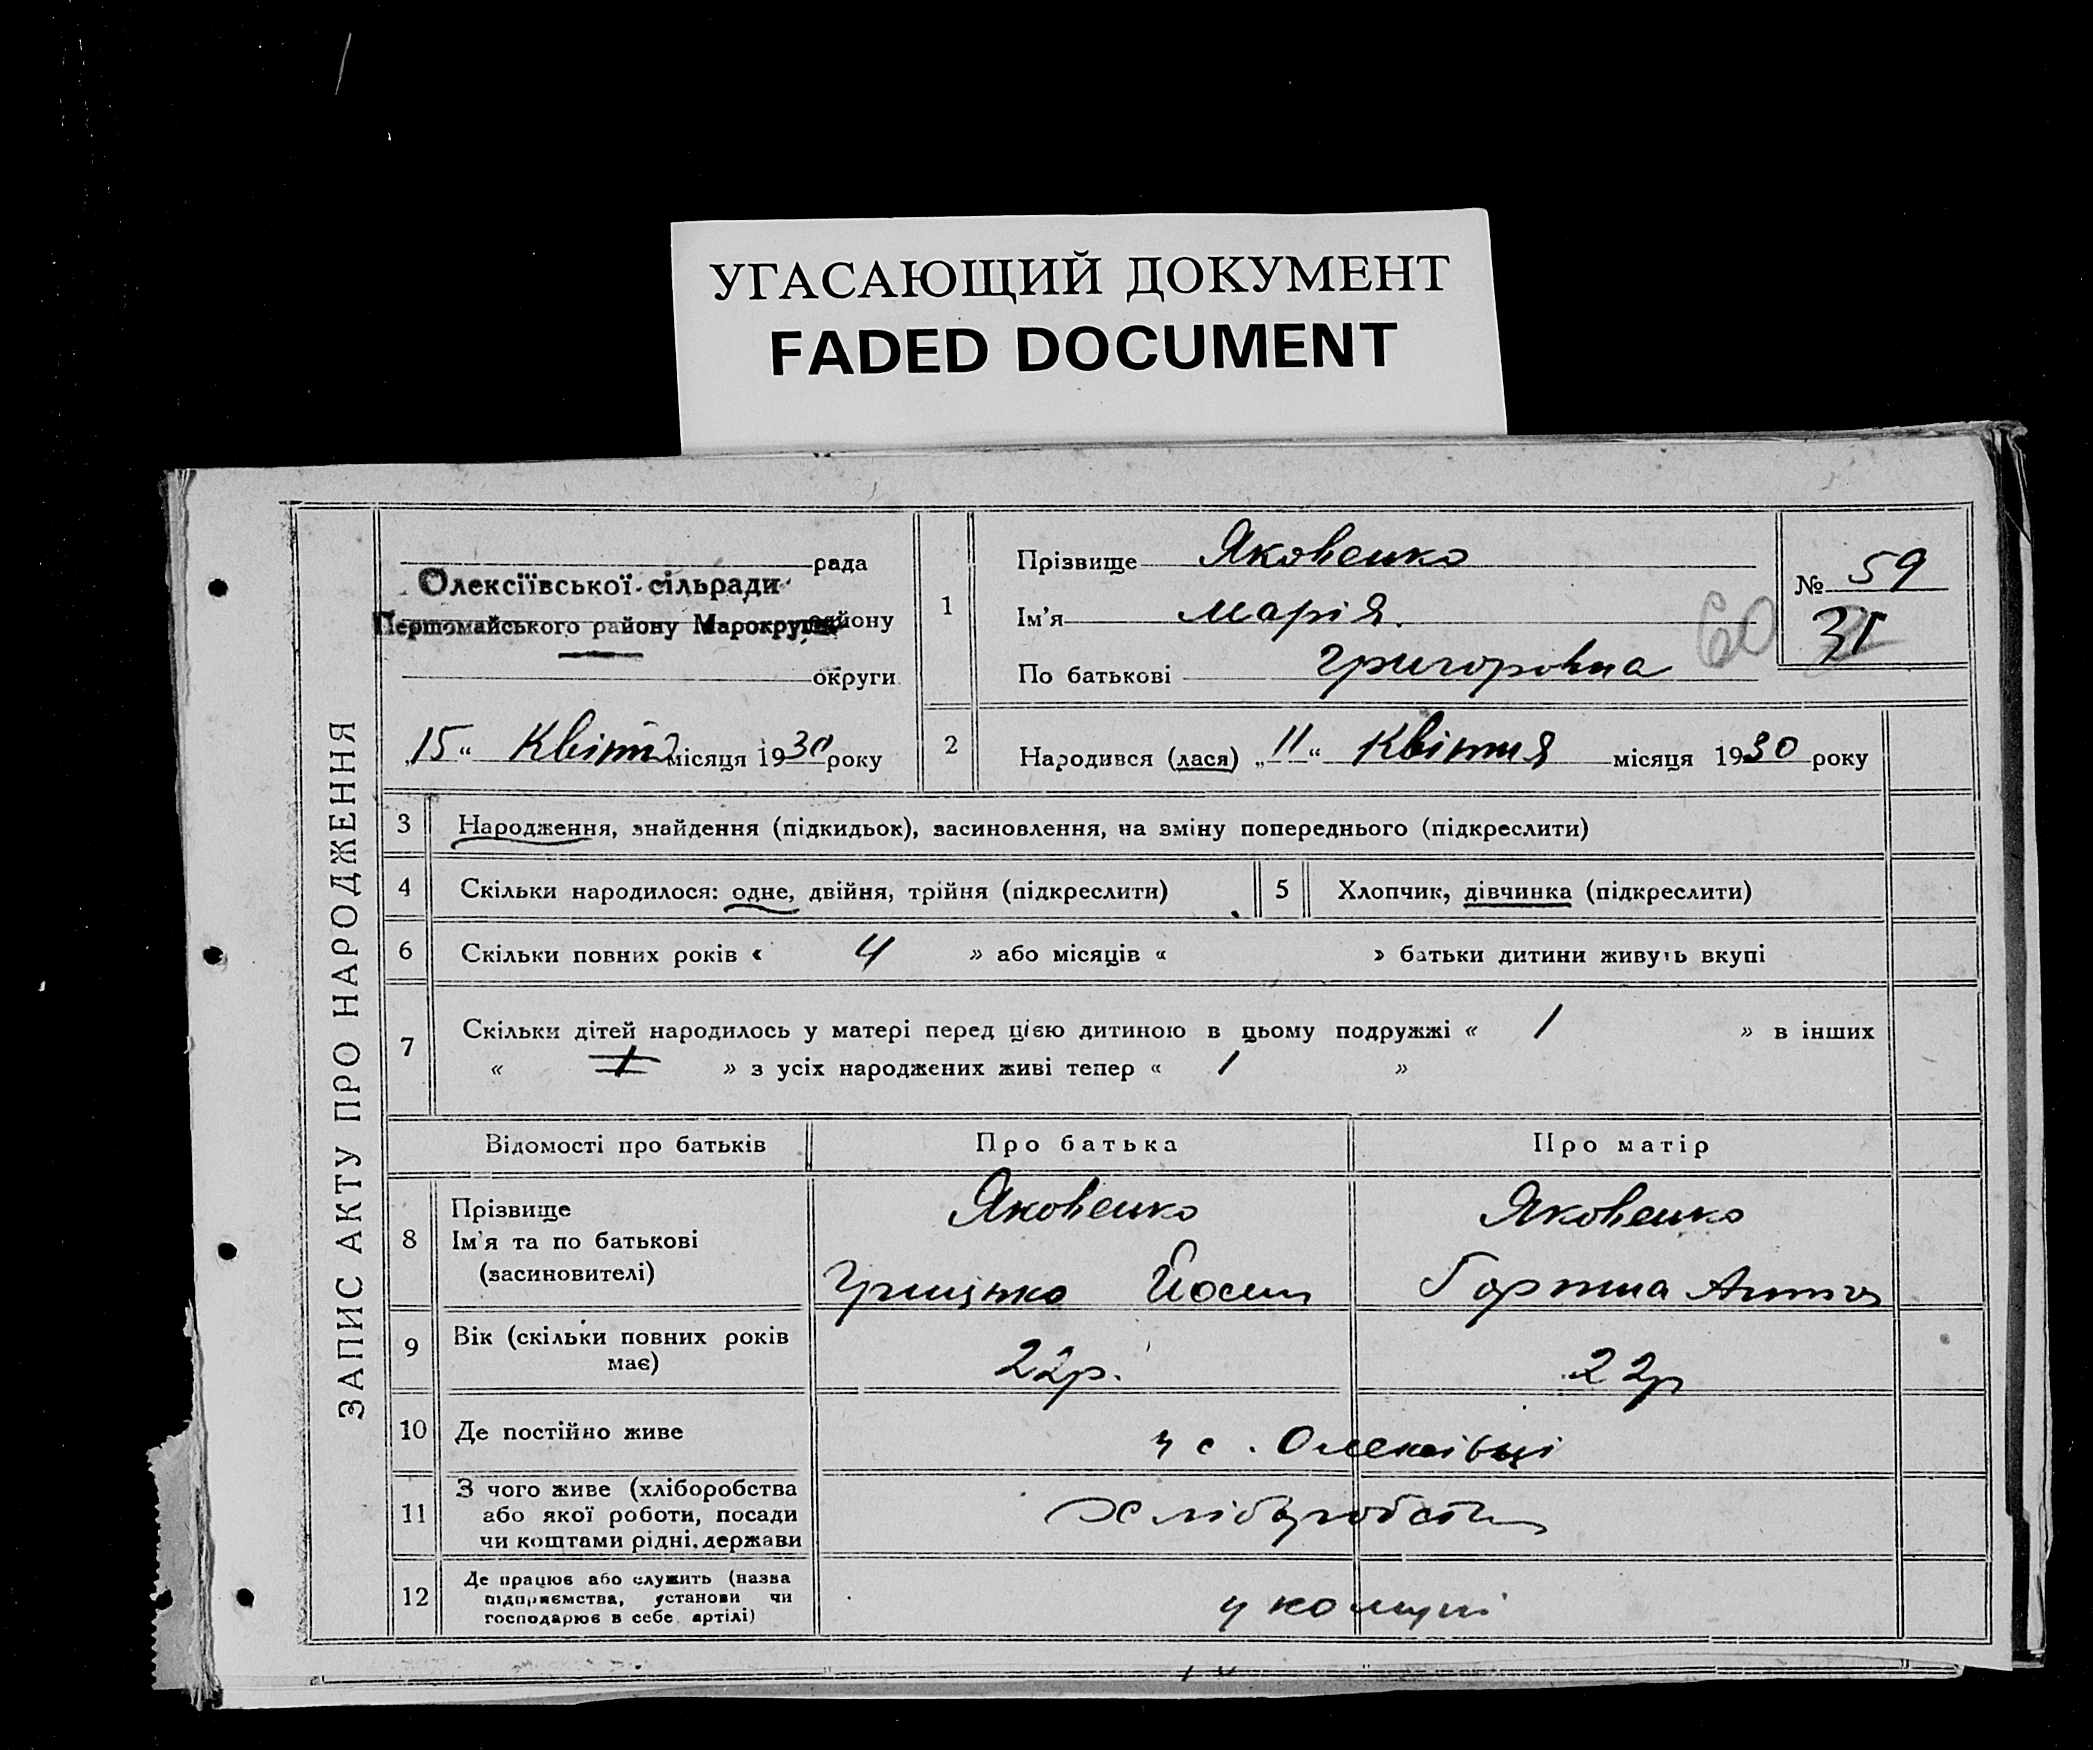 УГАСАЮЩИЙ ДОКУМЕНТ
FADED DOCUMENT
ЗАПИС АКТУ ПРО НАРОДЖЕННЯ
рада
Олексіївської сільради
Першомайського району Марокруги
району
округи
„15“ Квітня місяця 1930 року
1
Прізвище Яковенко
Ім'я Марія.
По батькові Григоровна
№ 59
31
60
2
Народився (лася) „11“ Квітня місяця 1930 року
3 Народження, знайдення (підкидьок), засиновлення, на зміну попереднього (підкреслити)
4 Скільки народилося: одне, двійня, трійня (підкреслити)
5 Хлопчик, дівчинка (підкреслити)
6 Скільки повних років « 4 » або місяців « » батьки дитини живуть вкупі
7 Скільки дітей народилось у матері перед цією дитиною в цьому подружжі « 1 » в інших
« 1 » з усіх народжених живі тепер « 1 »
Відомості про батьків Про батька Про матір
8 Прізвище Яковенко Яковенко
Ім'я та по батькові
(засиновителі)
Грицько Йосип Горпина
9 Вік (скільки повних років
має)
22р. 22р
10 Де постійно живе у с. Олексіївці
11 З чого живе (хліборобства
або якої роботи, посади
чи коштами рідні, держави
хліборобств
12 Де працює або служить (назва
підприємства, установи чи
господарює в себе артілі)
у комуні